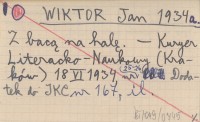 WIKTOR Jan 1934a.
Z bacą na halę. — Kuryer
Literacko-Naukowy (Kra-
ków) 18 VI 1934, Doda-
tek do IKC nr 167, il.